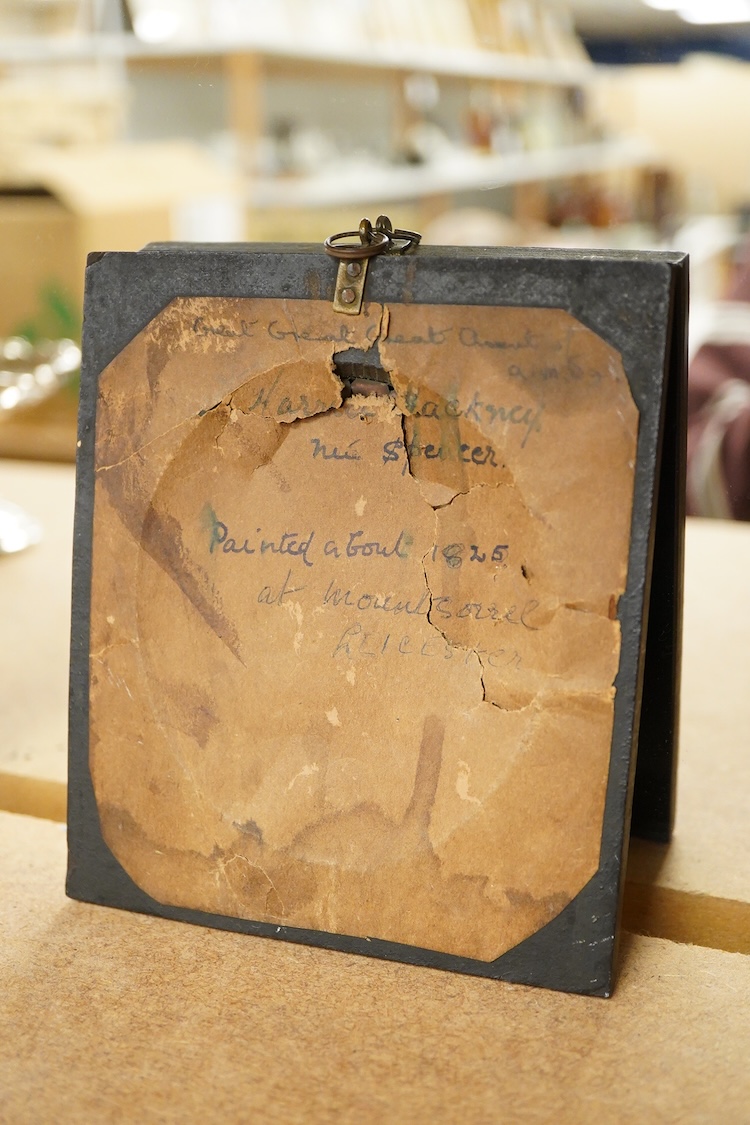 Great Great Great Aunt of
Harriet Hackney
neé Spencer.
Painted about 1825
at Mountsorrel
LEICESTER